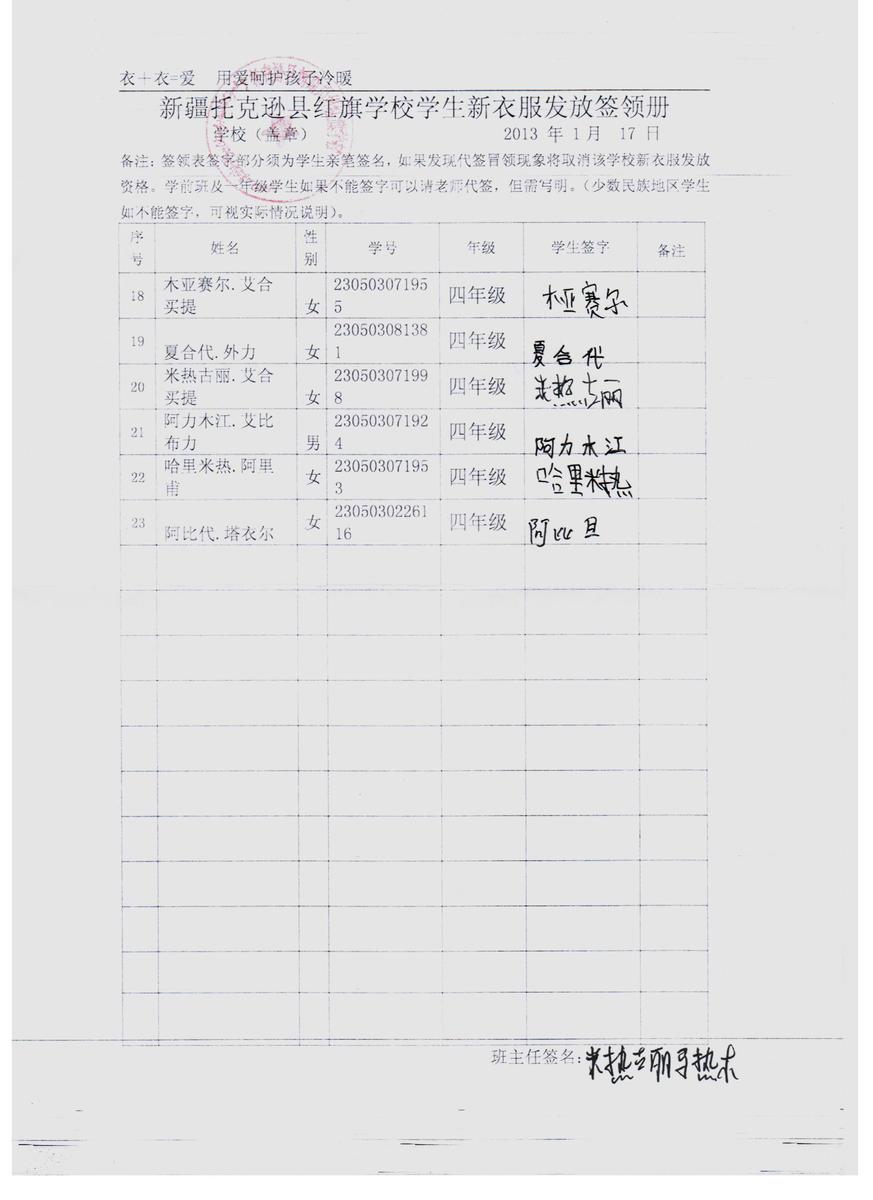 衣＋衣=爱 用爱呵护孩子冷暖
新疆托克逊县红旗学校学生新衣服发放签领册
学校（盖章） 2013 年 1月 17 日
备注：签领表签字部分须为学生亲笔签名，如果发现代签冒领现象将取消该学校新衣服发放
资格。学前班及一年级学生如果不能签字可以请老师代签，但需写明。（少数民族地区学生
如不能签字，可视实际情况说明）。
序号 姓名 性别 学号 年级 学生签字 备注
18 木亚赛尔.艾合买提 女 230503071955 四年级 木亚赛尔
19 夏合代.外力 女 230503081381 四年级 夏合代
20 米热古丽.艾合买提 女 230503071998 四年级 米热古丽
21 阿力木江.艾比布力 男 230503071924 四年级 阿力木江
22 哈里米热.阿里甫 女 230503071953 四年级 哈里米热
23 阿比代.塔衣尔 女 2305030226116 四年级 阿比旦
班主任签名：米热古丽马热木